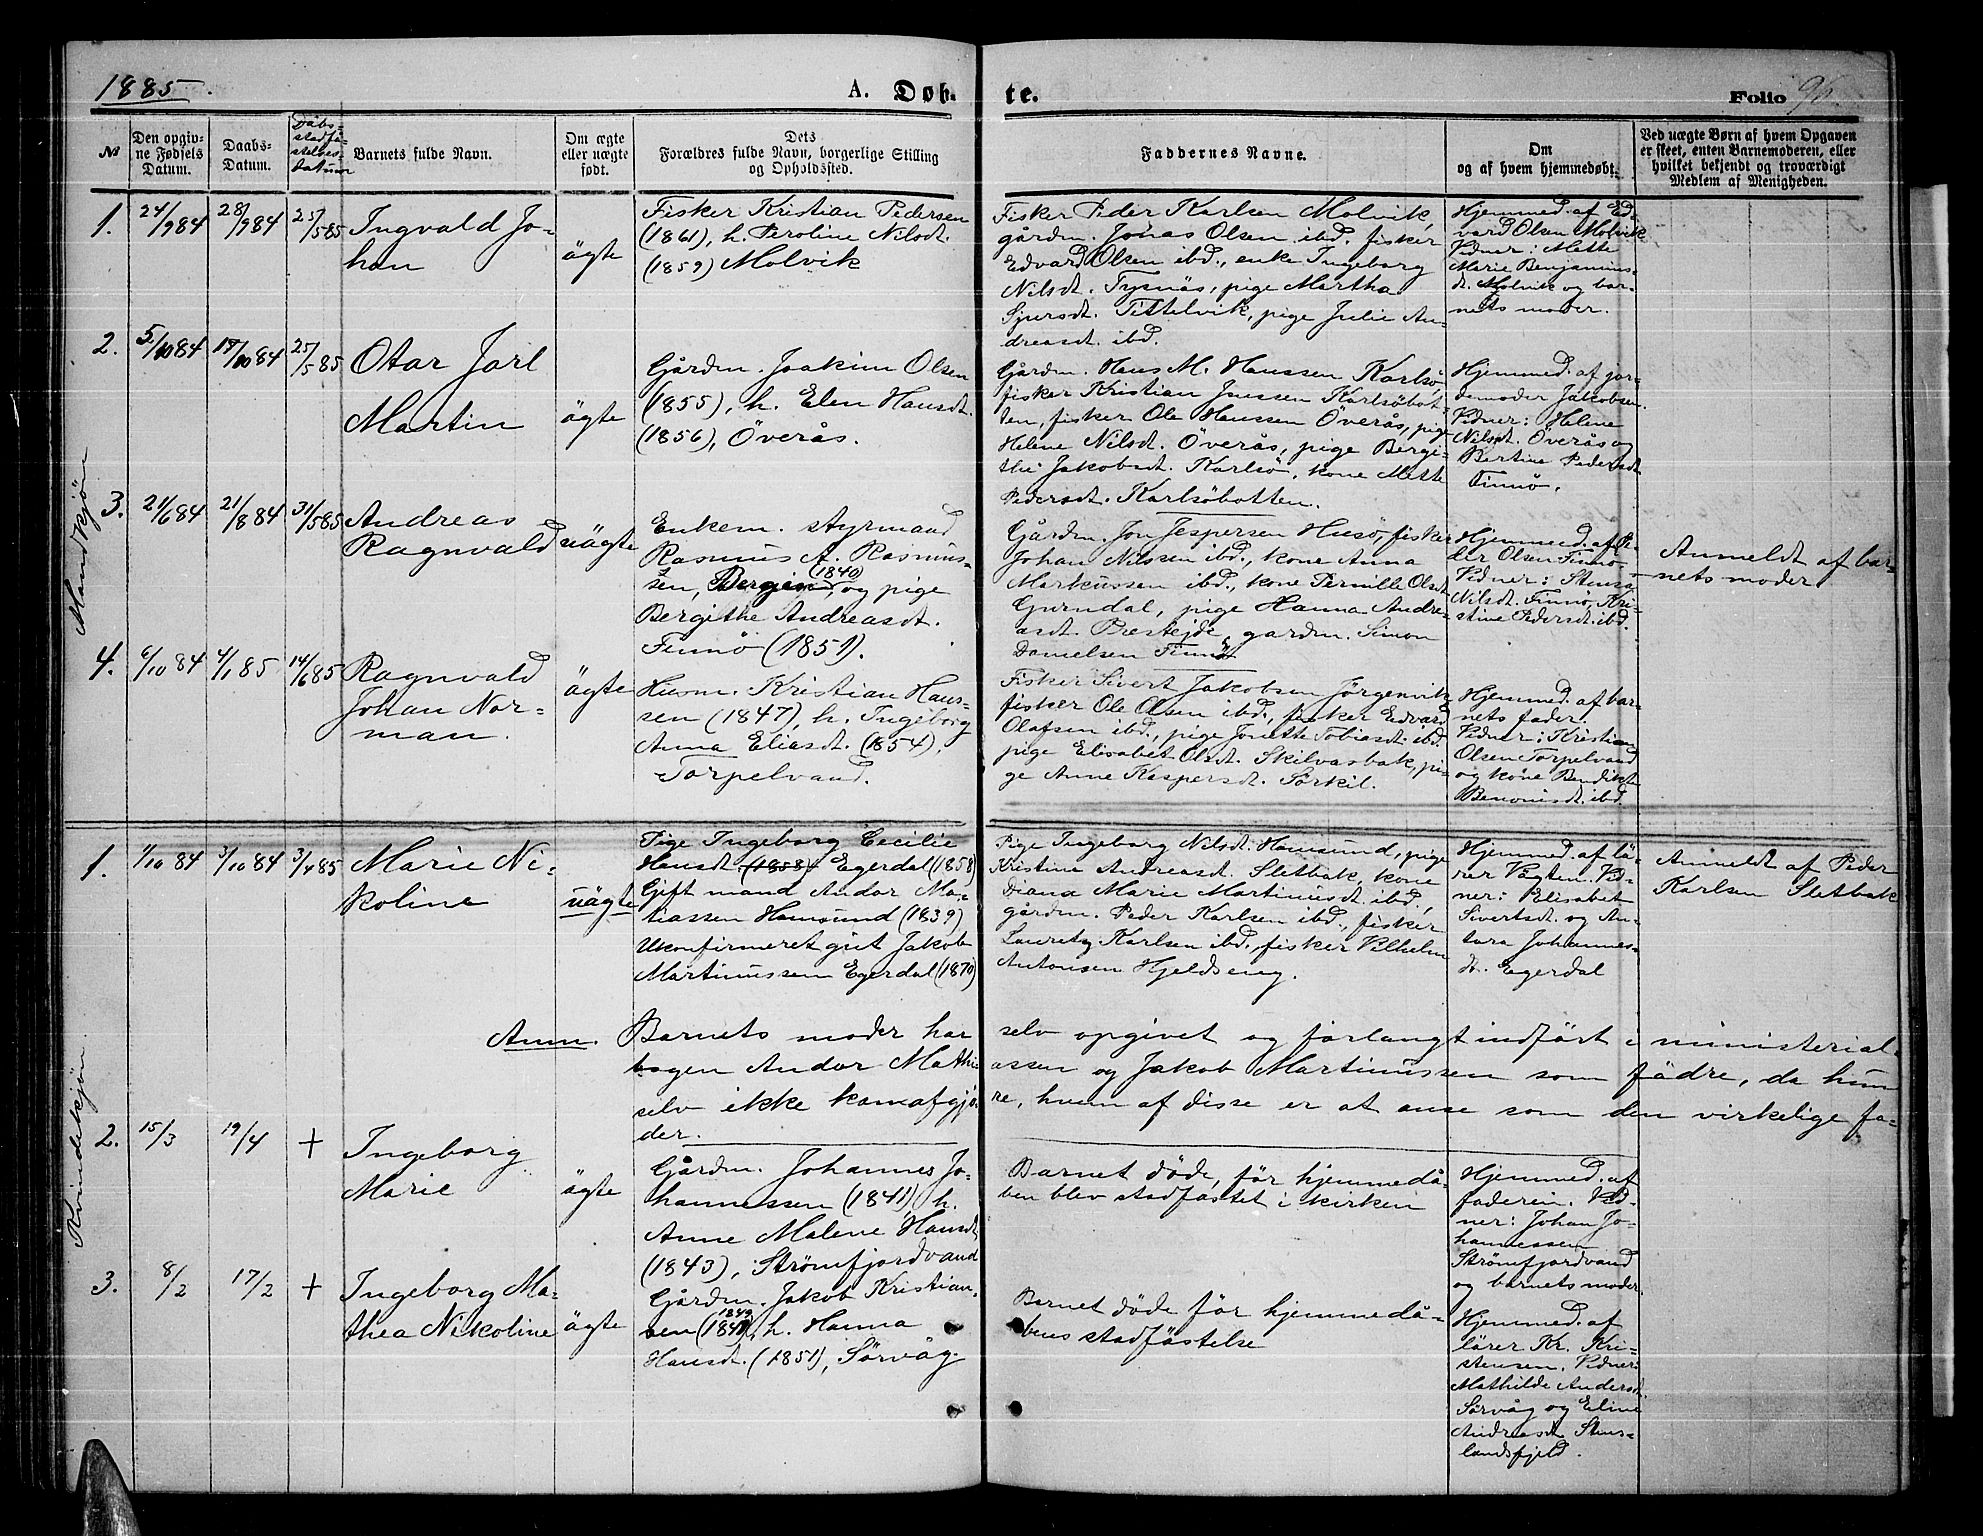 1885.
A. Døb-
te.
Folio 96.
№
Den opgiv-
ne Fødsels
Datum.
Daabs-
Datum.
Dåbs-
stadfæ-
stelses-
datum
Barnets fulde Navn.
Om ægte
eller uægte
født.
Dets
Forældres fulde Navn, borgerlige Stilling
og Opholdssted.
Faddernes Navne.
Om
og af hvem hjemmedøbt.
Ved uægte Børn af hvem Opgaven
er skeet, enten Barnemoderen, eller
hvilket bekjendt og troværdigt
Medlem af Menigheden.
Mandkjøn
1. 24/9 84 28/9 84 25/5 85
Ingvald Jo-
han
ägte
Fisker Kristian Pedersen
(1861), h. Peroline Nilsdt.
(1859) Molvik
Fisker Peder Karlsen Molvik,
gårdm. Jonas Olsen ibd. fisker
Edvard Olsen ibd., enke Ingeborg
Nilsdt. Tysnäs, pige Martha
Sjursdt. Tittelvik, pige Julie An-
dreasdt. ibd.
Hjemmed. af Ed-
vard Olsen Molvik
Vidner: Mette
Marie Benjamins-
dt. Molvik og bar-
nets moder.
2. 5/10 84 19/10 84 25/5 85
Otar Jarl
Martin
ägte
Gårdm. Joakim Olsen
(1855), h. Elen Hansdt.
(1856), Överås.
Gårdm. Hans M. Hanssen Karlsö,
fisker Kristian Jenssen Karlsöbot-
ten, fisker Ole Hanssen Överås, pige
Helene Nilsdt. Överås, pige Bergi-
the Jakobsdt. Karlsö, kone Mette
Pedersdt. Karlsöbotten.
Hjemmed. af jor-
demoder Jakobsen.
Vidner: Helene
Nilsdt. Överås og
Bertine Pedersdt
Finnö.
3. 21/6 84 21/8 84 31/5 85
Andreas
Ragnvald
uägte
Enkem. styrmand
Rasmus A. Rasmus-
sen, Bergen (1840), og pige
Bergithe Andreasdt.
Finnö (1851).
Gårdm. Jon Jespersen Husö, fisker
Johan Nilssen ibd., kone Anna
Markussen ibd., kone Pernille Olsdt
pige Hanna Andre-
asdt. Prestejde, gardm. Simon
Danielsen Finnö
Hjemmed. af Pe-
der Olsen Finnö
Vidner:
Nilsdt. Finnö, Kri-
stine Pedersdt. ibd.
Anmeldt af bar-
nets moder
4. 6/10 84 4/1 85 14/6 85
Ragnvald
Johan Nor-
man.
ägte
Husm. Kristian Hans-
sen (1847), h. Ingeborg
Anna Eliasdt. (1854),
Torpelvand.
Fisker Sivert Jakobsen Jörgenvik,
fisker Ole Olsen ibd., fisker Edvard
Olafsen ibd., pige Jonette Tobiasdt. ibd.
pige Elisabet Olsdt. Skilvasbak, pi-
ge Anne Kaspersdt. Sörkil.
Hjemmed. af bar-
nets fader.
Vidner: Kristian
Olsen Torpelvand
og kone Bendikte
Benonisdt. ibd.
Kvindekjön
1. 1/10 84 3/10 84 3/4 85
Marie Ni-
koline
uägte
Pige Ingeborg Cecilie
Hansdt. (1858) Egerdal (1858)
Gift mand Andor Ma-
tiassen Hamsund (1839)
Ukonfirmeret gut Jakob
Martinussen Egerdal (1870)
Pige Ingeborg Nilsdt. Hamsund, pige
Kristine Andreasdt. Sletbak, kone
Diana Marie Martinusdt ibd.,
gårdm. Peder Karlsen ibd., fisker
Lauretz Karlsen ibd., fisker Vilhelm
Antonsen Hjeldseng.
Hjemmed. af lä-
rer Vogten. Vid-
ner: Elisabet
Sivertsdt. og An-
tora Johannes-
dt. Egerdal
Anmeldt af Peder
Karlsen Sletbak
Anm. Barnets moder har selv opgivet og forlangt indfört i ministerial-
bogen Andor Mathi- assen og Jakob Martinussen som fädre, da hun
selv ikke kan afgjö- re, hvem af disse er at anse som den virkelige fa-
der.
2. 15/3 19/4 +
Ingeborg
Marie
ägte
Gårdm. Johannes Jo-
hannessen (1841), h.
Anne Malene Hansdt
(1843), Strömfjordvand
Barnet döde, för hjemmedå-
ben blev stadfästet i kirken
Hjemmed. af
faderen. Vid-
ner: Johan Jo-
hannessen
Strömfjordvand
og barnets moder.
3. 8/2 17/2 +
Ingeborg Ma-
thea Nikoline
ägte
Gårdm. Jakob Kristian-
sen (1849), h. Hanna
Hansdt. (1851), Sörvåg.
Barnet döde för hjemmedå-
bens stadfästelse
Hjemmed. af
lärer Kr. Kri-
stensen. Vidner:
Mathilde Andersdt.
Sörvåg og Eline
Andreasdt Stens-
landsfjeld.